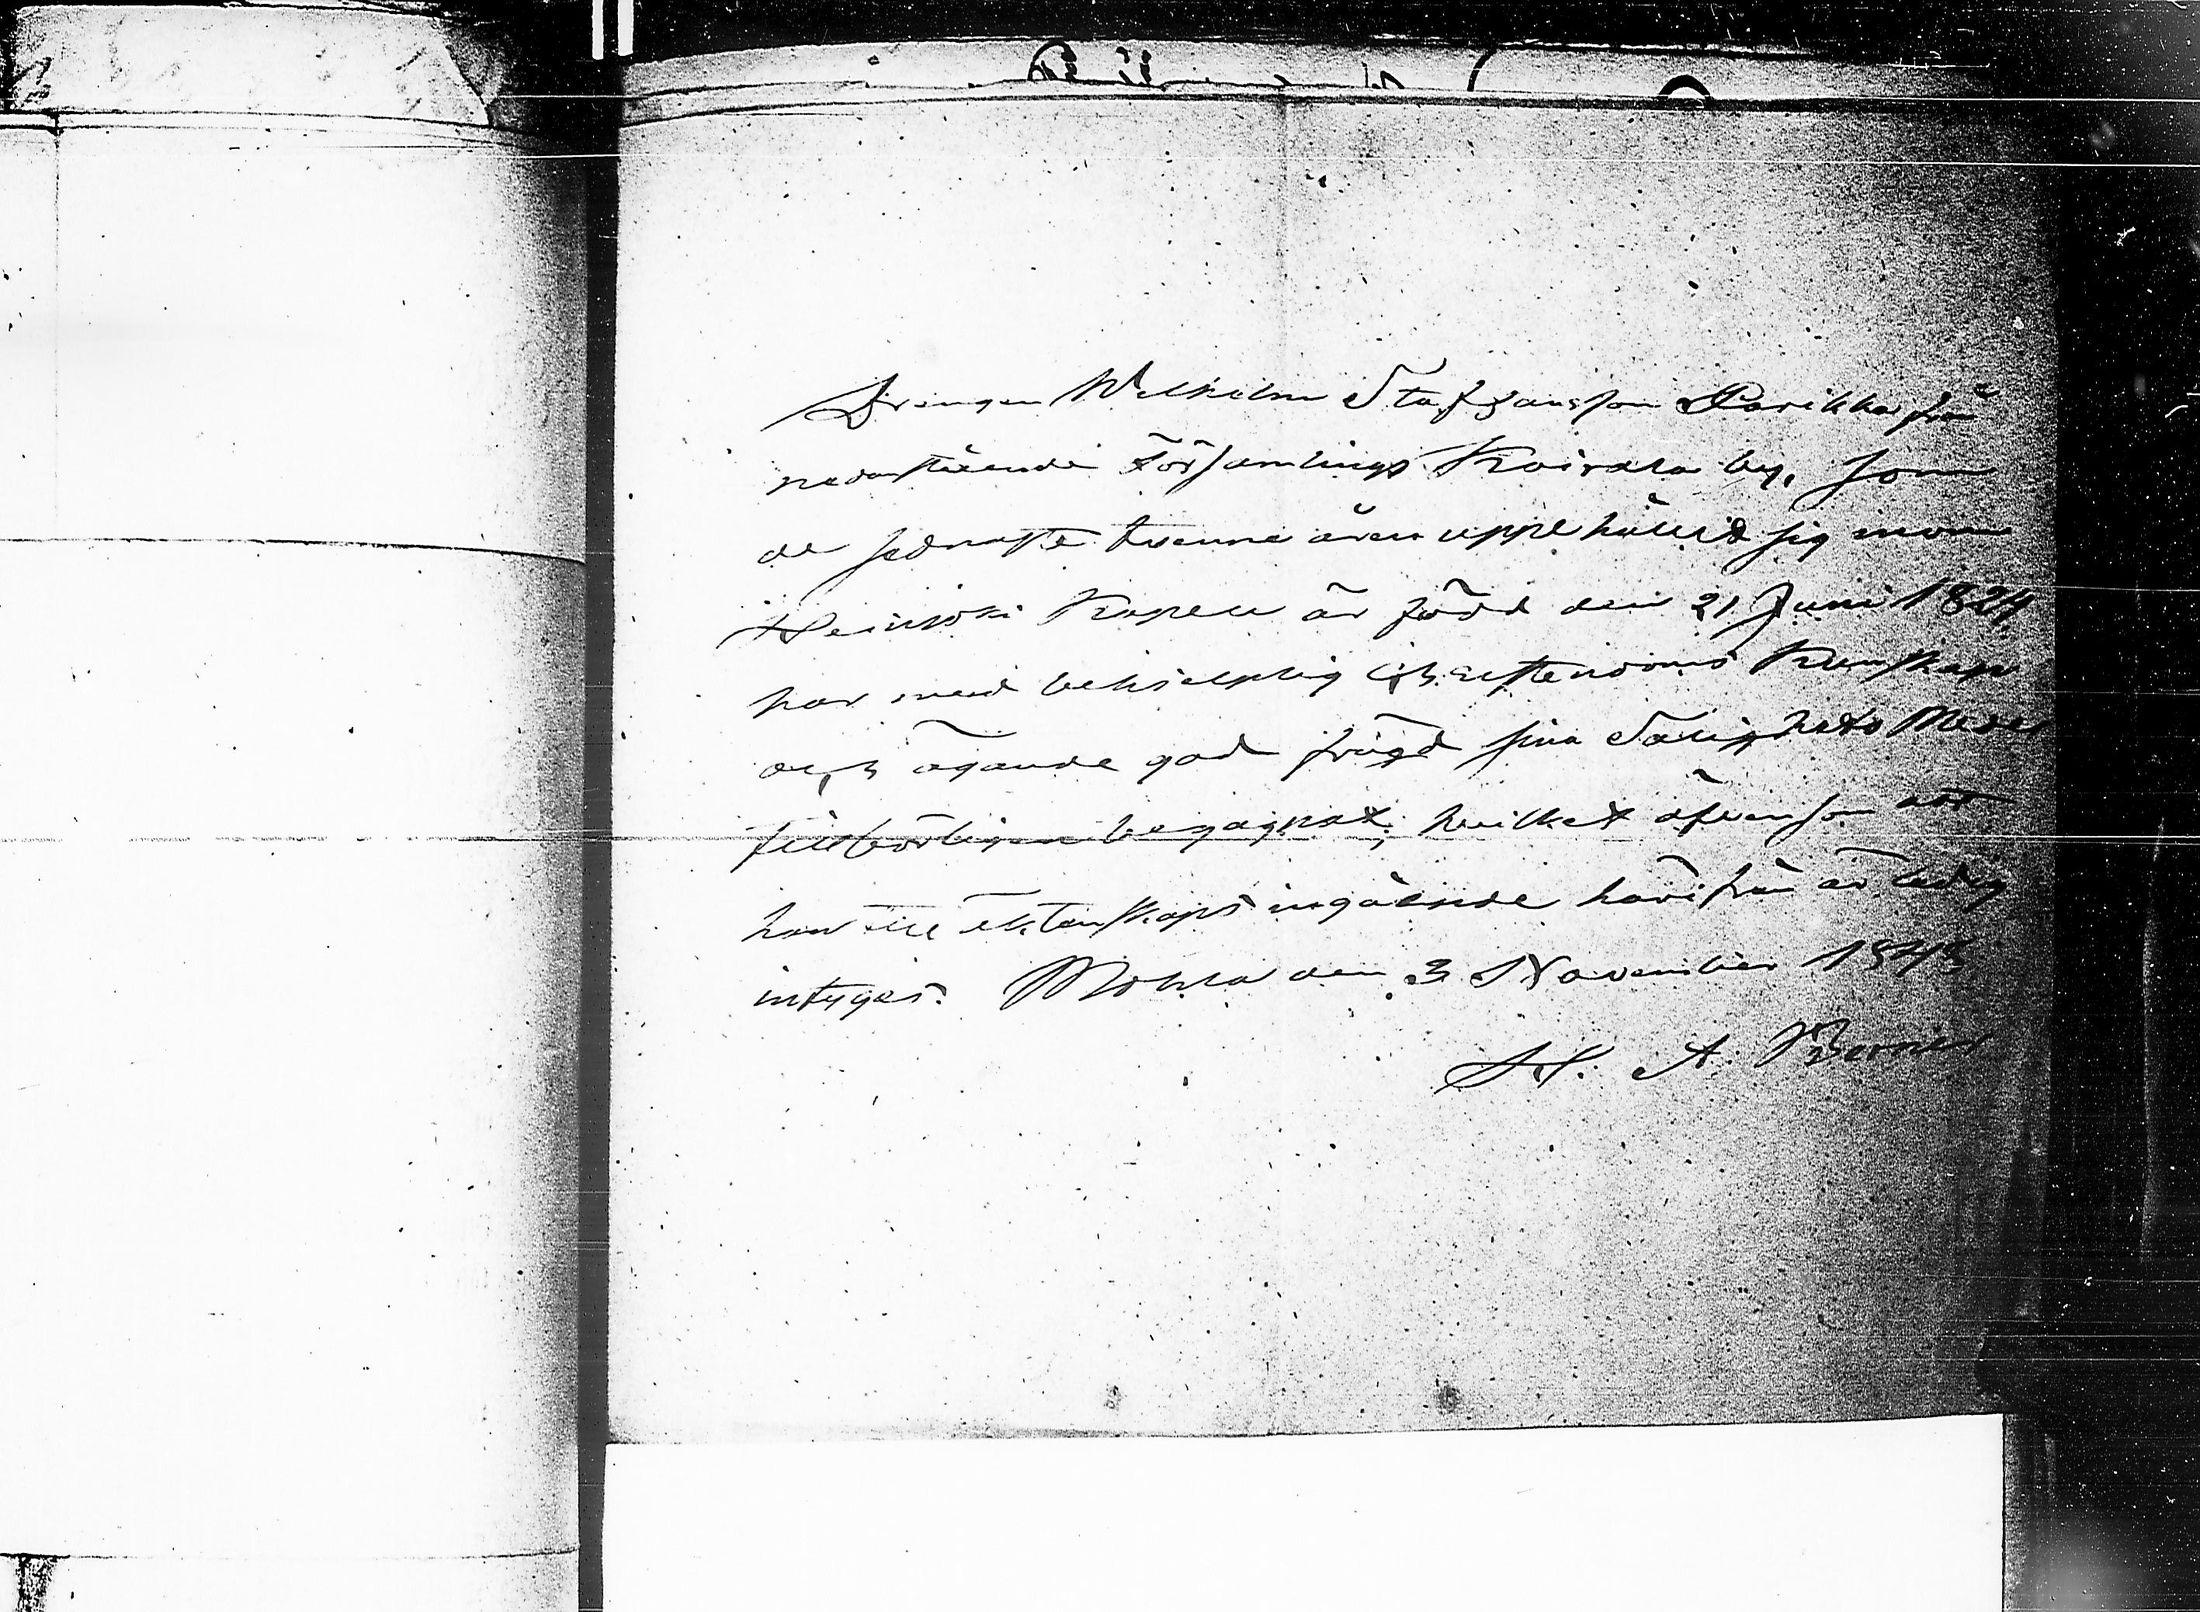 Drengen Wilhelm Staffansson Parikka från
nedanstående Församlings Koirala by, som
de sednaste tvenne åren uppehållid sig inom
Heinjoki Kapell är född den 21 Juni 1824,
har med behjelplig Christendoms Kunskap
och ägande god frägd sina Salighets Medel
tillbörligen begagnat; hvilket äfvensom att
han till äktenskaps ingående härifrån är ledig
intygas. Mohla den 3 November 184
H. A.